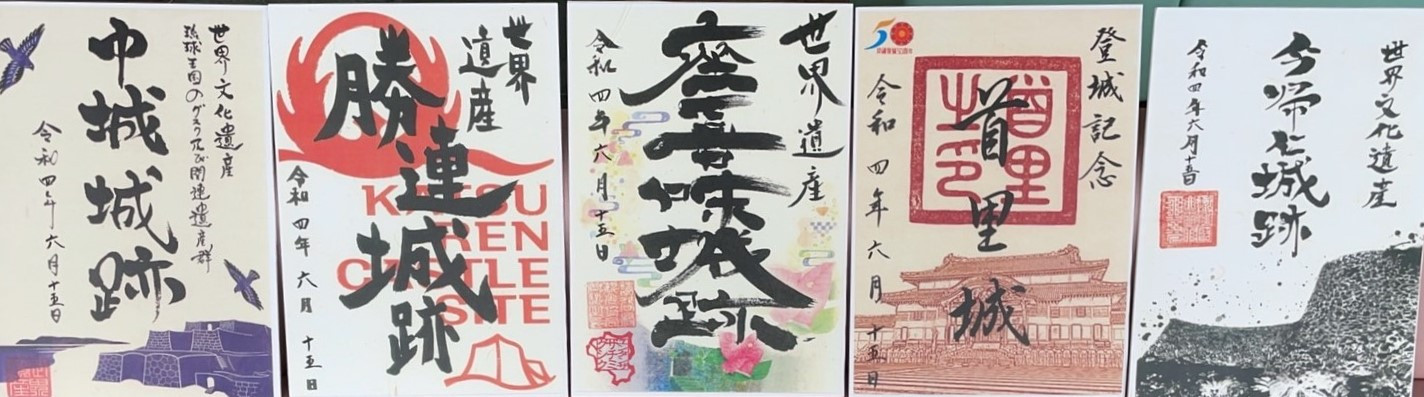 中城城跡
世界文化遺産
琉球王国のグスク及び関連遺産群
令和四年六月十五日
世界
遺産
勝連城跡
令和四年六月十五日
KATSU
REN
CASTLE
SITE
世界遺産
座喜味城跡
令和四年六月十五日
50
登城記念
首里城
令和四年六月十五日
首里
城印
世界文化遺産
今帰仁城跡
令和四年六月十五日